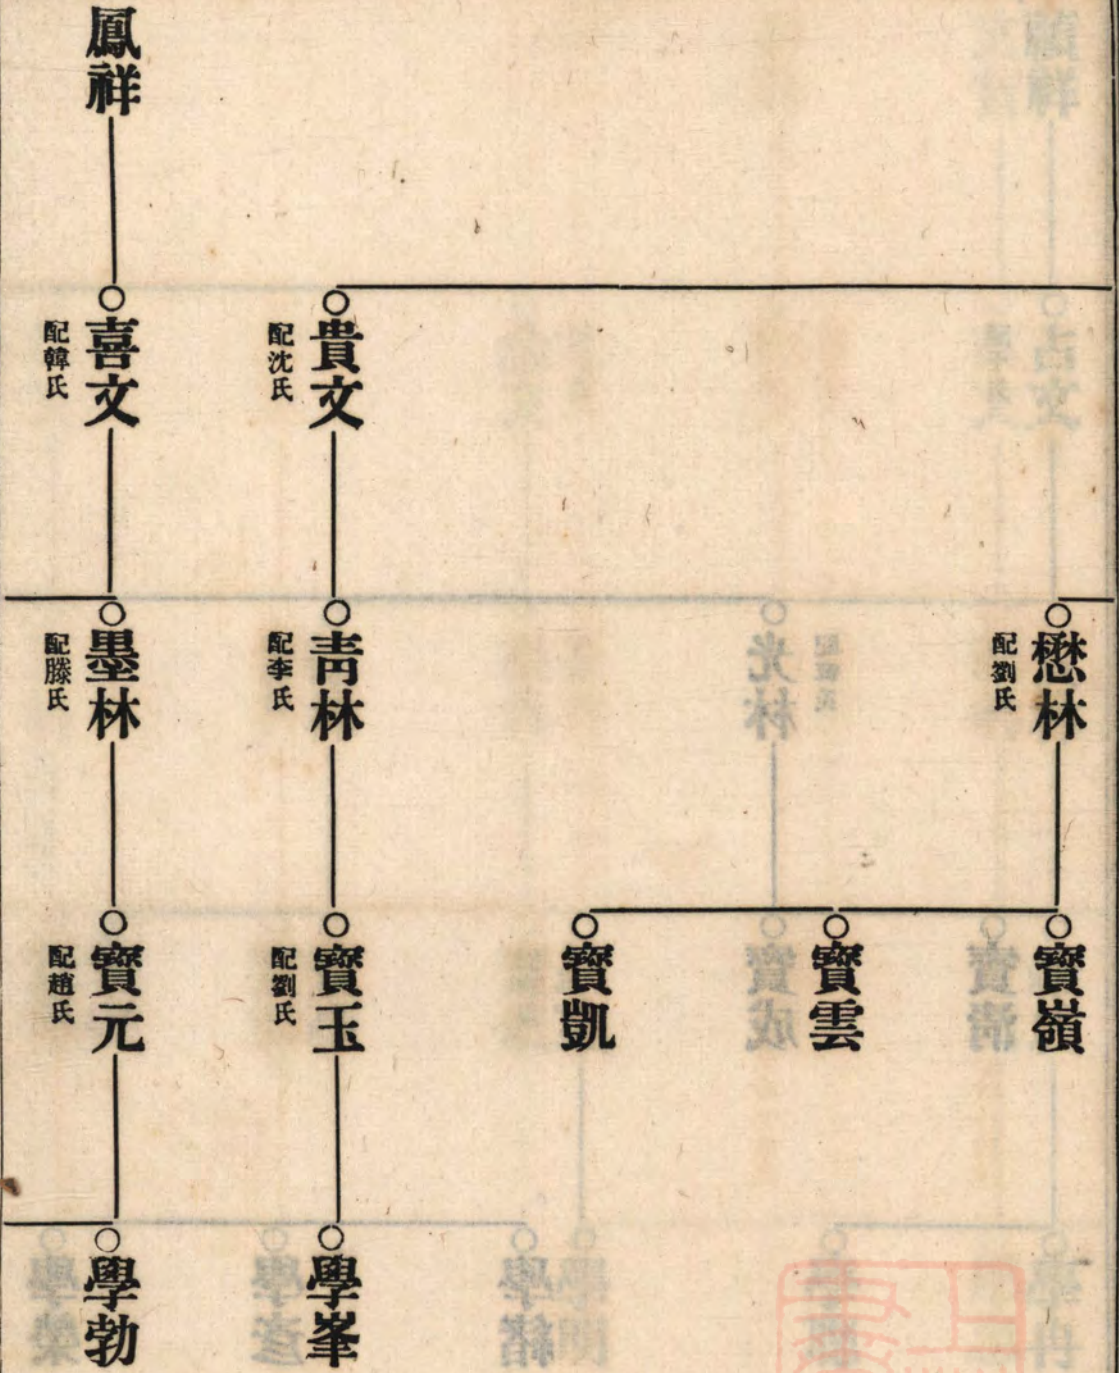 懋林
配劉氏
寶嶺
寶雲
寶凱
貴文
配沈氏
青林
配李氏
寶玉
配劉氏
學峯
鳳祥
喜文
配韓氏
墨林
配滕氏
寶元
配趙氏
學勃